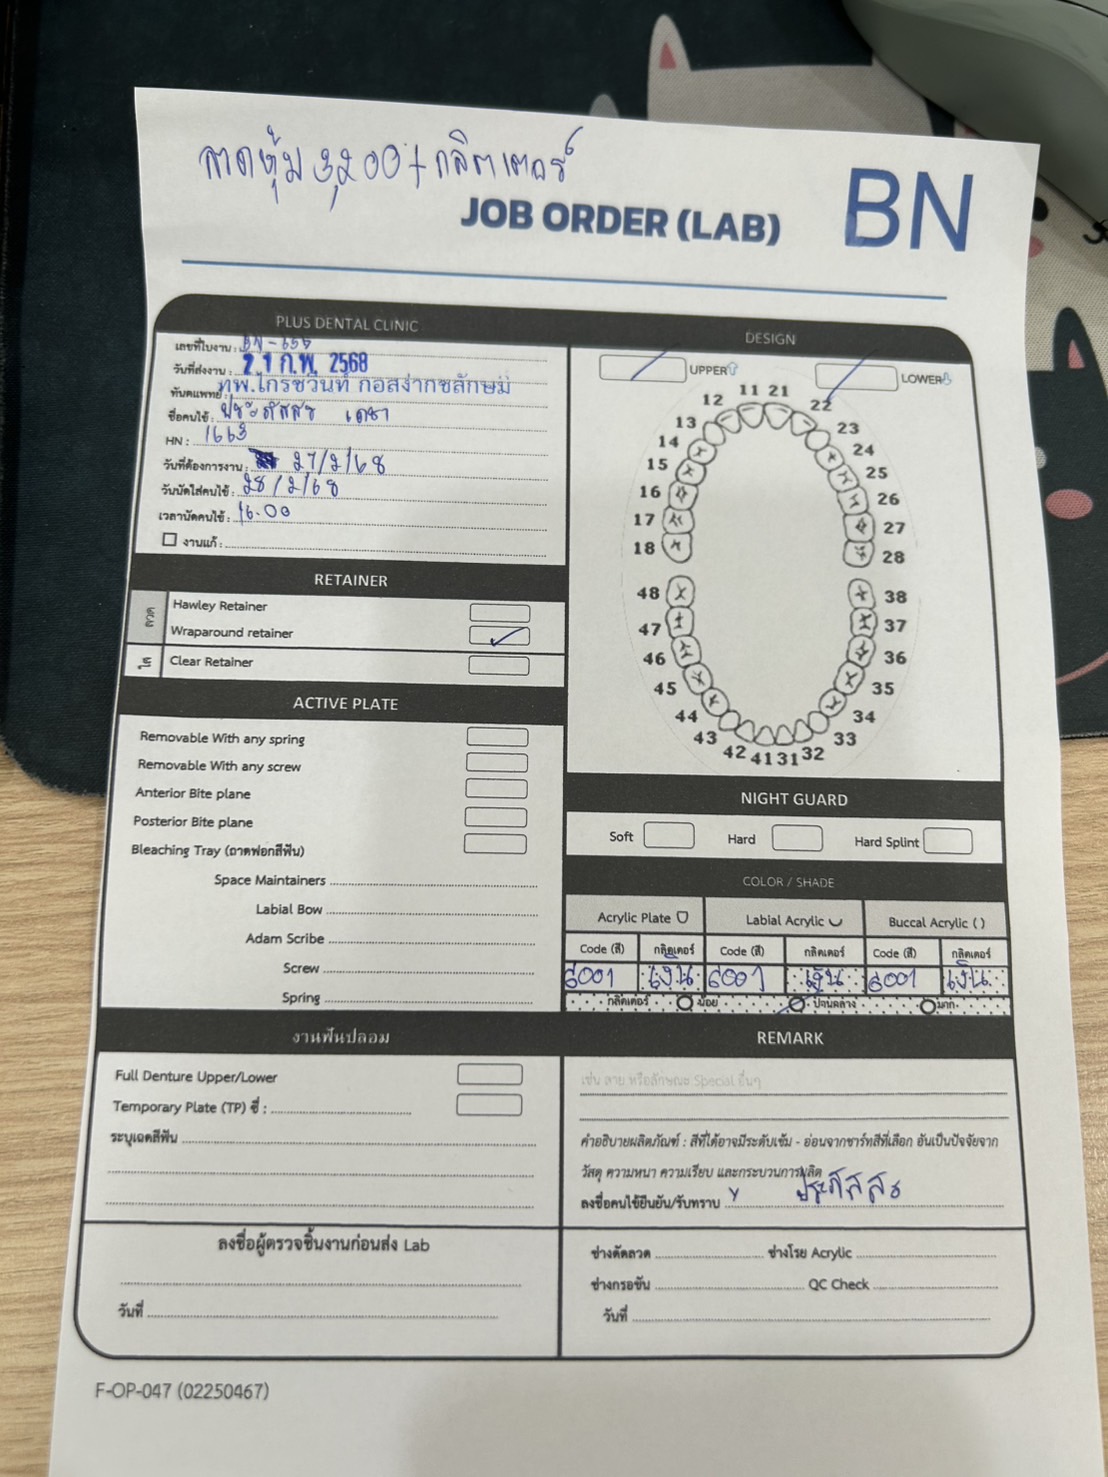 ลวดหุ้ม 3,200 + กลิตเตอร์
JOB ORDER (LAB)
BN
PLUS DENTAL CLINIC
เลขที่ใบงาน : BN-655
วันที่ส่งงาน : 21 ก.พ. 2568
ทันตแพทย์ : ทพ.ไกรชวินท์
ชื่อคนไข้ : ประภัสสร เดชา
HN : 1663
วันที่ต้องการงาน : 27/2/68
วันนัดใส่คนไข้ : 28/2/68
เวลานัดคนไข้ : 16.00
งานแก้ :
DESIGN
UPPER
LOWER
11 21
12 22
13 23
14 24
15 25
16 26
17 27
18 28
48 38
47 37
46 36
45 35
44 34
43 33
42 41 31 32
RETAINER
ลวด
Hawley Retainer
Wraparound retainer
ใส
Clear Retainer
ACTIVE PLATE
Removable With any spring
Removable With any screw
Anterior Bite plane
Posterior Bite plane
Bleaching Tray (ถาดฟอกสีฟัน)
Space Maintainers
Labial Bow
Adam Scribe
Screw
Spring
NIGHT GUARD
Soft Hard Hard Splint
COLOR / SHADE
Acrylic Plate Labial Acrylic Buccal Acrylic ( )
Code (สี) กลิตเตอร์ Code (สี) กลิตเตอร์ Code (สี) กลิตเตอร์
6001 เงิน 6001 เงิน 6001 เงิน
กลิตเตอร์ น้อย ปานกลาง มาก
งานฟันปลอม
Full Denture Upper/Lower
Temporary Plate (TP) ซี่ :
ระบุเฉดสีฟัน
REMARK
เช่น ลาย หรือลักษณะ Special อื่นๆ
คำอธิบายผลิตภัณฑ์ : สีที่ได้อาจมีระดับเข้ม - อ่อนจากชาร์ทสีที่เลือก อันเป็นปัจจัยจาก
วัสดุ ความหนา ความเรียบ และกระบวนการผลิต
ลงชื่อคนไข้ยืนยัน/รับทราบ ประภัสสร
ลงชื่อผู้ตรวจชิ้นงานก่อนส่ง Lab
วันที่
ช่างดัดลวด ช่างโรย Acrylic
ช่างกรอขัน QC Check
วันที่
F-OP-047 (02250467)